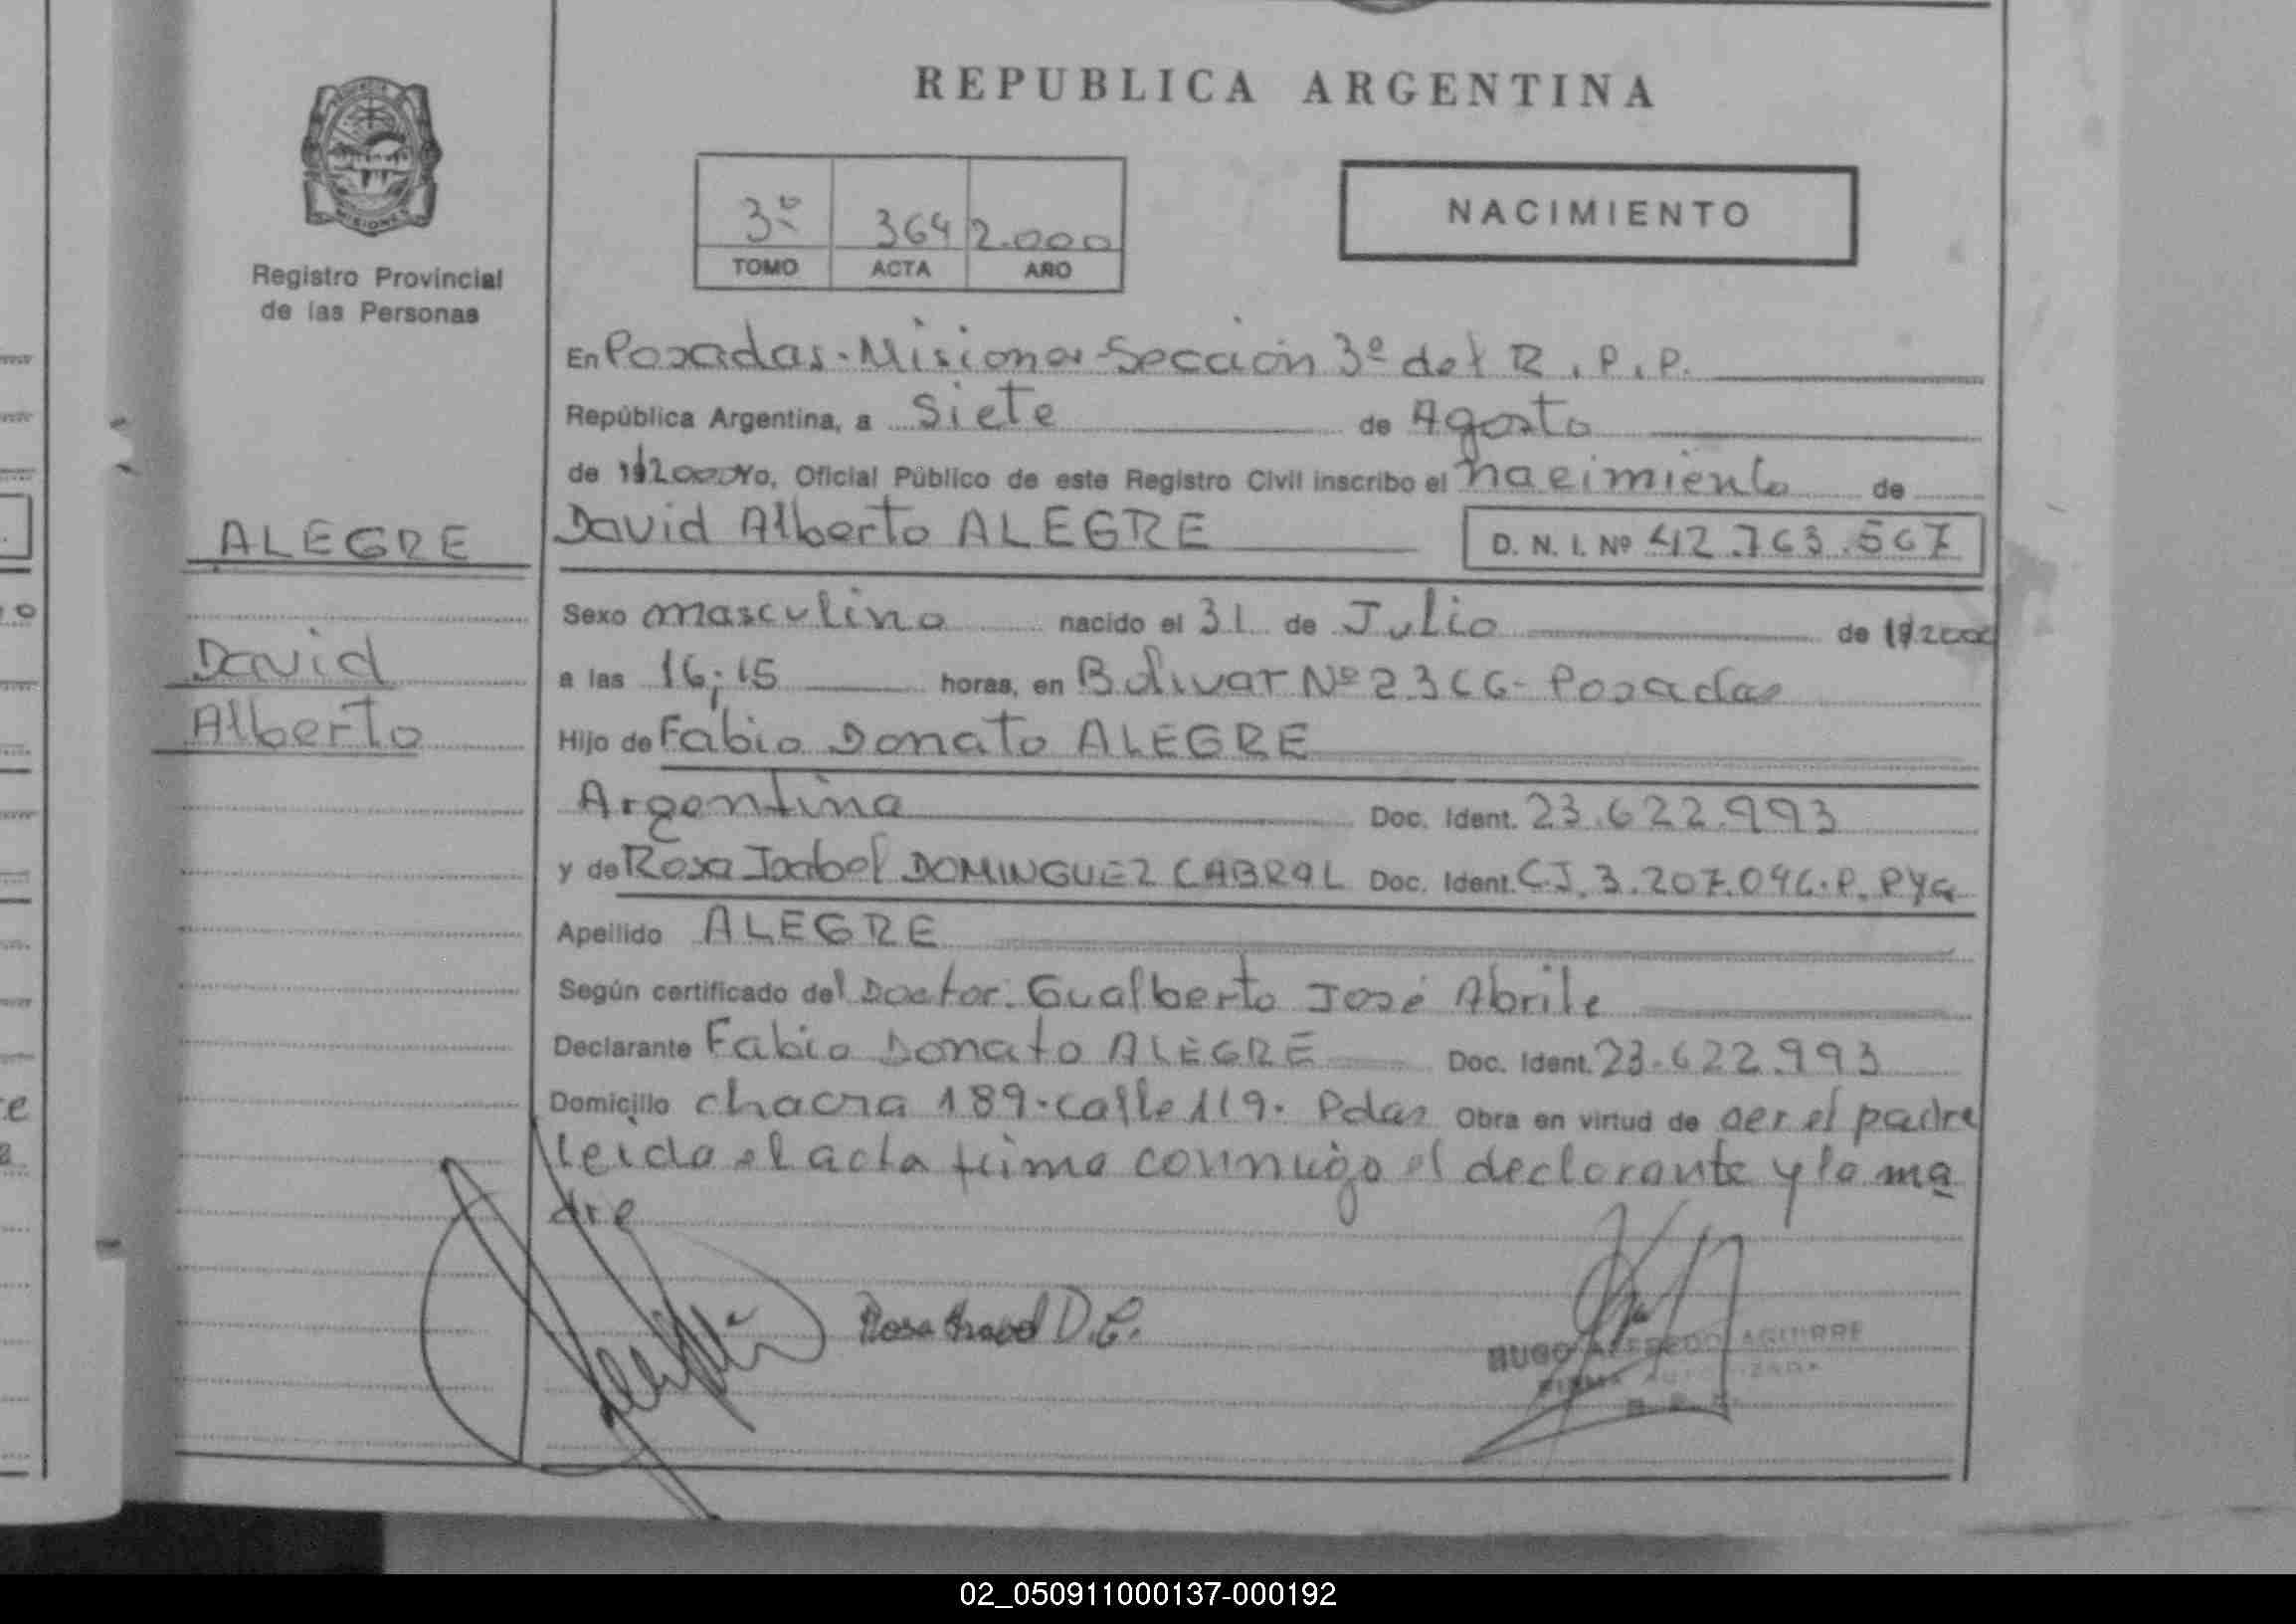 REPUBLICA ARGENTINA
3º 364 2.000
TOMO ACTA AÑO
NACIMIENTO
MISIONES
Registro Provincial
de las Personas
ALEGRE
David
Alberto
En Posadas-Misiones-Sección 3º del R.P.P.
República Argentina, a siete de Agosto
de 192000 Yo, Oficial Público de este Registro Civil inscribo el nacimiento de
David Alberto ALEGRE D. N. I. Nº 42.763.567
Sexo masculino nacido el 31 de Julio de 192000
a las 16;15 horas, en Bolivar Nº 2366- Posadas
Hijo de Fabio Donato ALEGRE
Argentina Doc. Ident. 23.622.993
y de Rosa Isabel DOMINGUEZ CABRAL Doc. Ident. C.I. 3.207.096.P. PYG
Apellido ALEGRE
Según certificado del Doctor. Gualberto José Abrile
Declarante Fabio Donato ALEGRE Doc. Ident. 23.622.993
Domicilio chacra 189-calle 119- Pdas Obra en virtud de ser el padre
leida el acta firma conmigo el declarante y la ma
dre
Rosa Isabel D.C.
HUGO ALFREDO AGUIRRE
FIRMA AUTORIZADA
R. P. P.
02_050911000137-000192